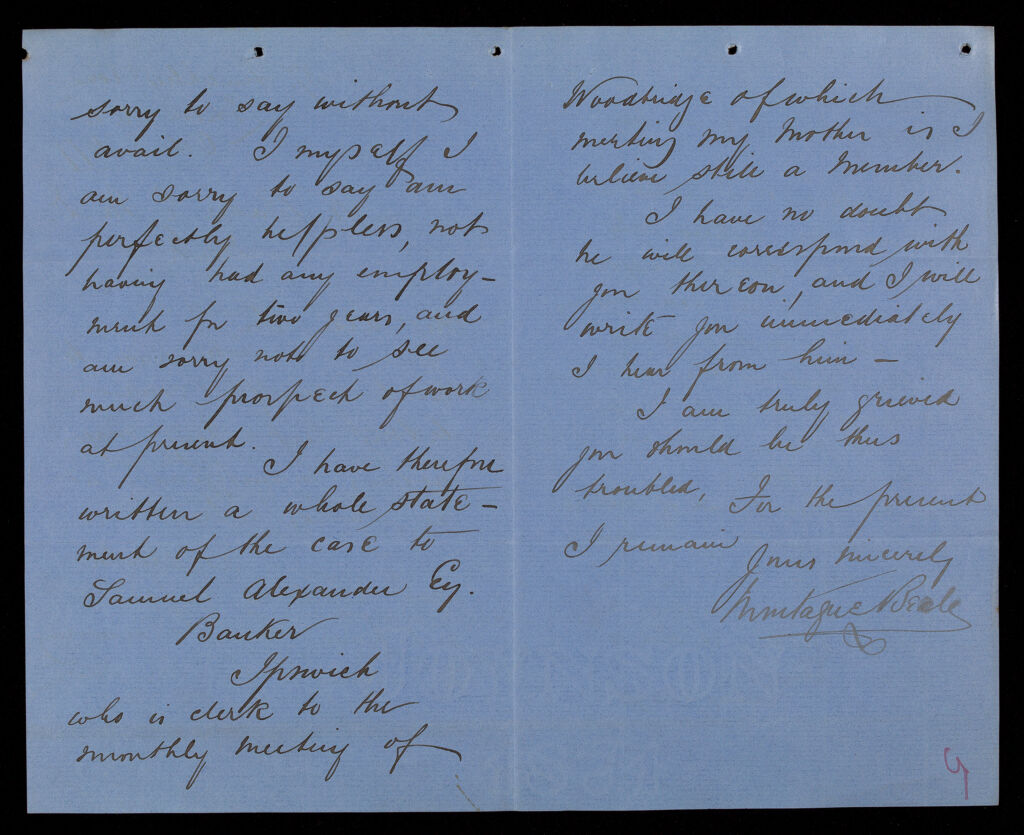 sorry to say without
avail. I myself I
am sorry to say am
perfectly helpless, not
having had any employ-
ment for two years, and
am sorry not to see
much prospect of work
at present.
I have therefore
written a whole state-
ment of the case to
Samuel Alexander Esq.
Banker
Ipswich
who is clerk to the
monthly meeting of
Woodbridge of which
meeting my Mother is I
believe still a Member.
I have no doubt
he will correspond with
you thereon, and I will
write you immediately
I hear from him -
I am truly grieved
you should be thus
troubled, For the present
I remain
Yours sincerely
Montague Beale